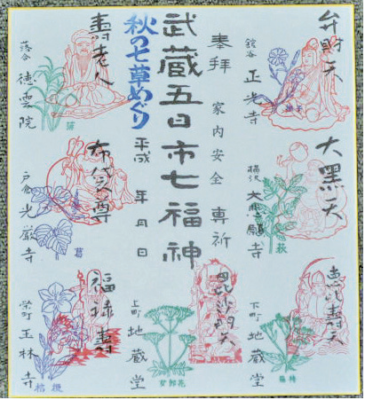 弁財天
舘谷 正光寺
大黒天
横沢 大悲願寺
萩
恵比壽天
下町 地蔵堂
奉拝 家内安全 専祈
武蔵五日市七福神
秋の七草めぐり
平成 年 月 日
毘沙門天
上町 地蔵堂
女郎花
壽老人
落合 徳雲院
布袋尊
戸倉 光厳寺
葛
福禄壽
栄町 玉林寺
桔梗